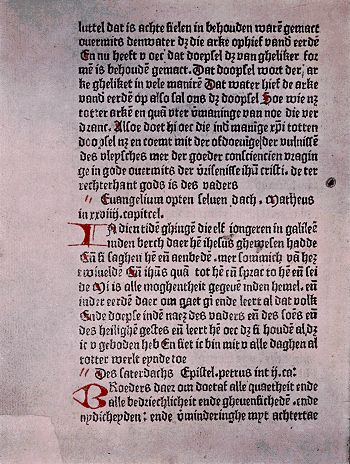 luttel dat is achte sielen in behouden warē gemact
ouermits denwater dz die arke ophief vand eerdē
En nu heeft v oec dat doepsel dz van gheliker for
mē is behoudē gemact. Dat doopsel wort der ar
ke gheliket in vele manirē Dat water hief de arke
vand eerdē op also sal ons dz doopsel Soe wie nz
totter arkē en quā vter v̄maninge van noe die ver
dranc. Alsoe doet hi oec die ind manīge xp̄i totten
doopsel nz en coemt mit der ofdoeuīge der vulnissē
des vleysches mer der goeder conscientien vragin
ge in gode ouermits der v̄risenisse ihū cristi. de ter
rechterhant gods is des vaders
" Euangelium opten seluen dach. Matheus
in xxviij. capittel.
IN dien tidē ghingē die elf iongeren in galileē
inden berch daer hē ihesus ghewesen hadde
Eñ si saghen hē eñ aenbedē. mer sommich vā hez
twiueldē Eñ ihūs quā tot hē eñ sprac to hē eñ sei
de Mi is alle moghentheit gegeuē inden hemel. eñ
ind er eerdē daer om gaet gi ende leert al dat volk
Ende doepse indē naez des vaders eñ des soēs eñ
des heilighē gestes eñ leert hē oec dz si houdē al dz
ic v geboden heb En siet ic bin mit v alle daghen al
totter werlt eynde toe
" Des saterdachs Epistel. petrus int ij. ca:
BRoeders daer om doetaf alle quaetheit ende
alle bedriechlicheit ende gheuensichedē. ende
nydicheyden: ende v̄minderinghe myt achtertae